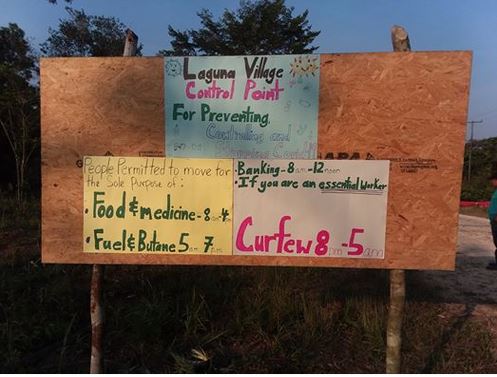 Laguna Village
Control Point
For Preventing,
Controlling and
People Permitted to move for
the Sole Purpose of:
• Food & medicine - 8 am 4
• Fuel & Butane 5 am 7 pm
• Banking - 8 am - 12 noon
• If you are an essential worker
Curfew 8 pm - 5 am